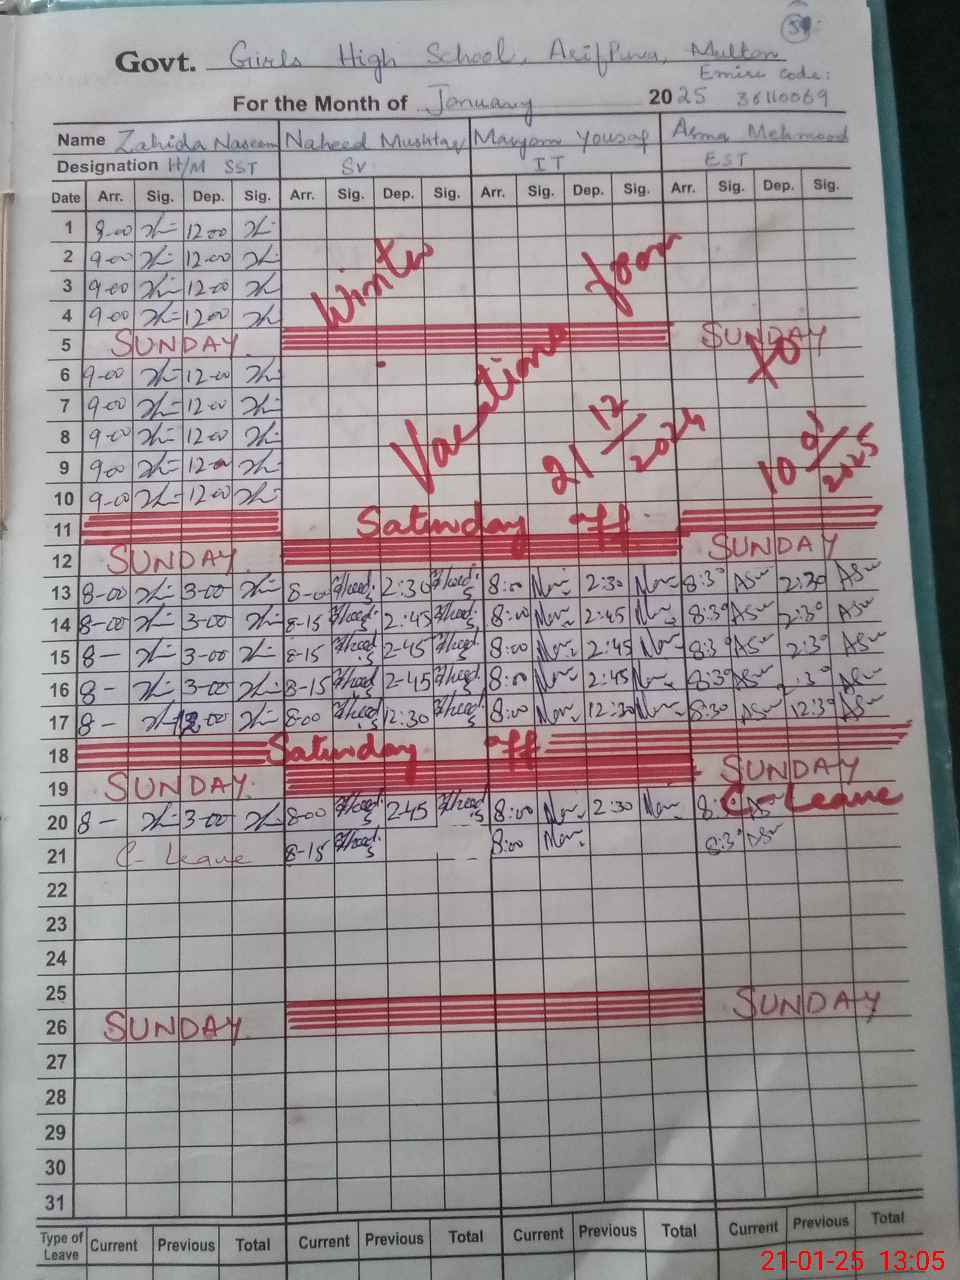 Govt. Girls High School, Arifpura, Multan
Emiss Code:
For the Month of January 2025 36110069
Name Zahida Naseem Naheed Mushtaq Maryam Yousaf Asma Mehmood
Designation H/M SST SV IT EST
Date Arr. Sig. Dep. Sig. Arr. Sig. Dep. Sig. Arr. Sig. Dep. Sig. Arr. Sig. Dep. Sig.
1 8-00 12-00
2 9-00 12-00
3 9-00 12-00
4 9-00 12-00
Winter Vacations from 21 12/2024 to 10 01/2025
5 SUNDAY SUNDAY
6 9-00 12-00
7 9-00 12-00
8 9-00 12-00
9 9-00 12-00
10 9-00 12-00
11 Saturday off
12 SUNDAY SUNDAY
13 8-00 3-00 8-00 2:30 8:00 2:30 8:30 2:30
14 8-00 3-00 8-15 2:45 8:00 2:45 8:30 2:30
15 8- 3-00 8-15 2-45 8:00 2:45 8:30 2:30
16 8- 3-00 8-15 2-45 8:00 2:45 8:30
17 8- 8-00 12:30 8:00 12:30 8:30 12:30
18 Saturday off
19 SUNDAY SUNDAY
20 8- 3-00 8-00 2-45 8:00 2:30 C-Leave
21 C-Leave 8-15 8:00 8:30
22
23
24
25
26 SUNDAY SUNDAY
27
28
29
30
31
Type of Leave Current Previous Total Current Previous Total Current Previous Total Current Previous Total
21-01-25 13:05